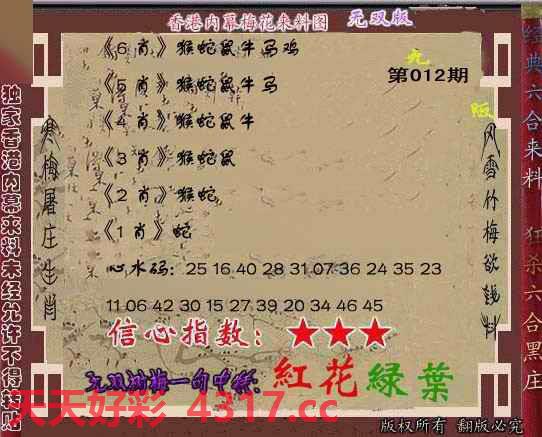 香港内幕梅花来料图 无双版
《6 肖》猴蛇鼠牛马鸡
《5 肖》猴蛇鼠牛马
《4 肖》猴蛇鼠牛
《3 肖》猴蛇鼠
《2 肖》猴蛇
《1 肖》蛇
第012期
心水码: 25 16 40 28 31 07 36 24 35 23
11 06 42 30 15 27 39 20 34 46 45
信心指数: ★★★
一句中特: 紅花緑葉
天天好彩 4317.cc
版权所有 翻版必究
独家香港内幕来料未经允许不得转贴
寒梅屠庄生肖
风雪竹梅欲钱料
经典六合来料
狂杀六合黑庄